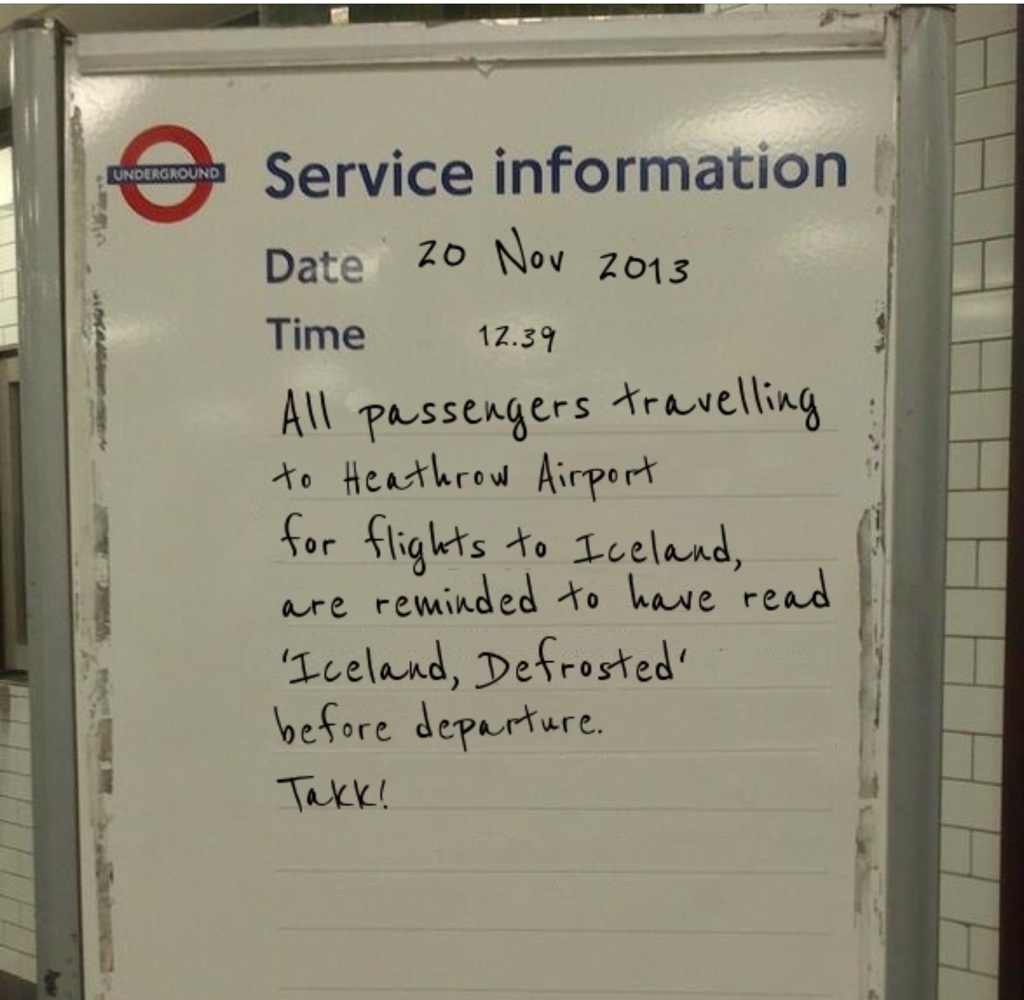 UNDERGROUND
Service information
Date 20 Nov 2013
Time 12.39
All passengers travelling
to Heathrow Airport
for flights to Iceland,
are reminded to have read
'Iceland, Defrosted'
before departure.
Takk!